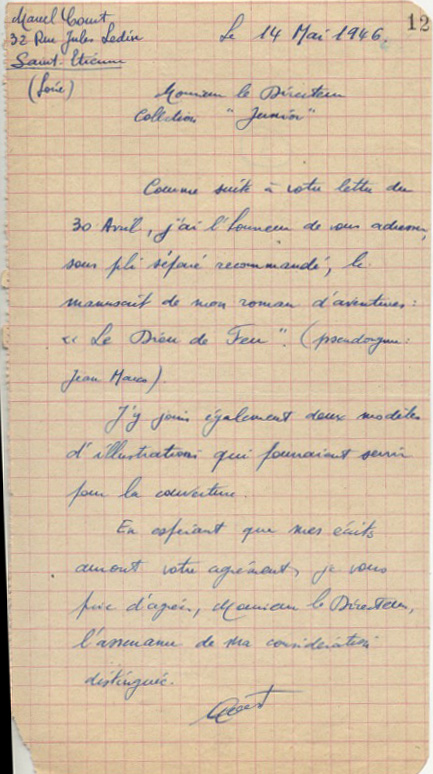 Marcel Count
32 Rue Jules Ledin
Saint-Etienne
(Loire)
12
Le 14 Mai 1946
Monsieur le Directeur
Collection "Junior"
Comme suite à votre lettre du
30 Avril, j'ai l'honneur de vous adresser,
sous pli séparé recommandé, le
manuscrit de mon roman d'aventures :
« Le Dieu de Feu ". (pseudonyme :
Jean Marco).
J'y joins également deux modèles
d'illustrations qui pourraient servir
pour la couverture.
En espérant que mes écrits
auront votre agrément, je vous
prie d'agréer, Monsieur le Directeur,
l'assurance de ma considération
distinguée.